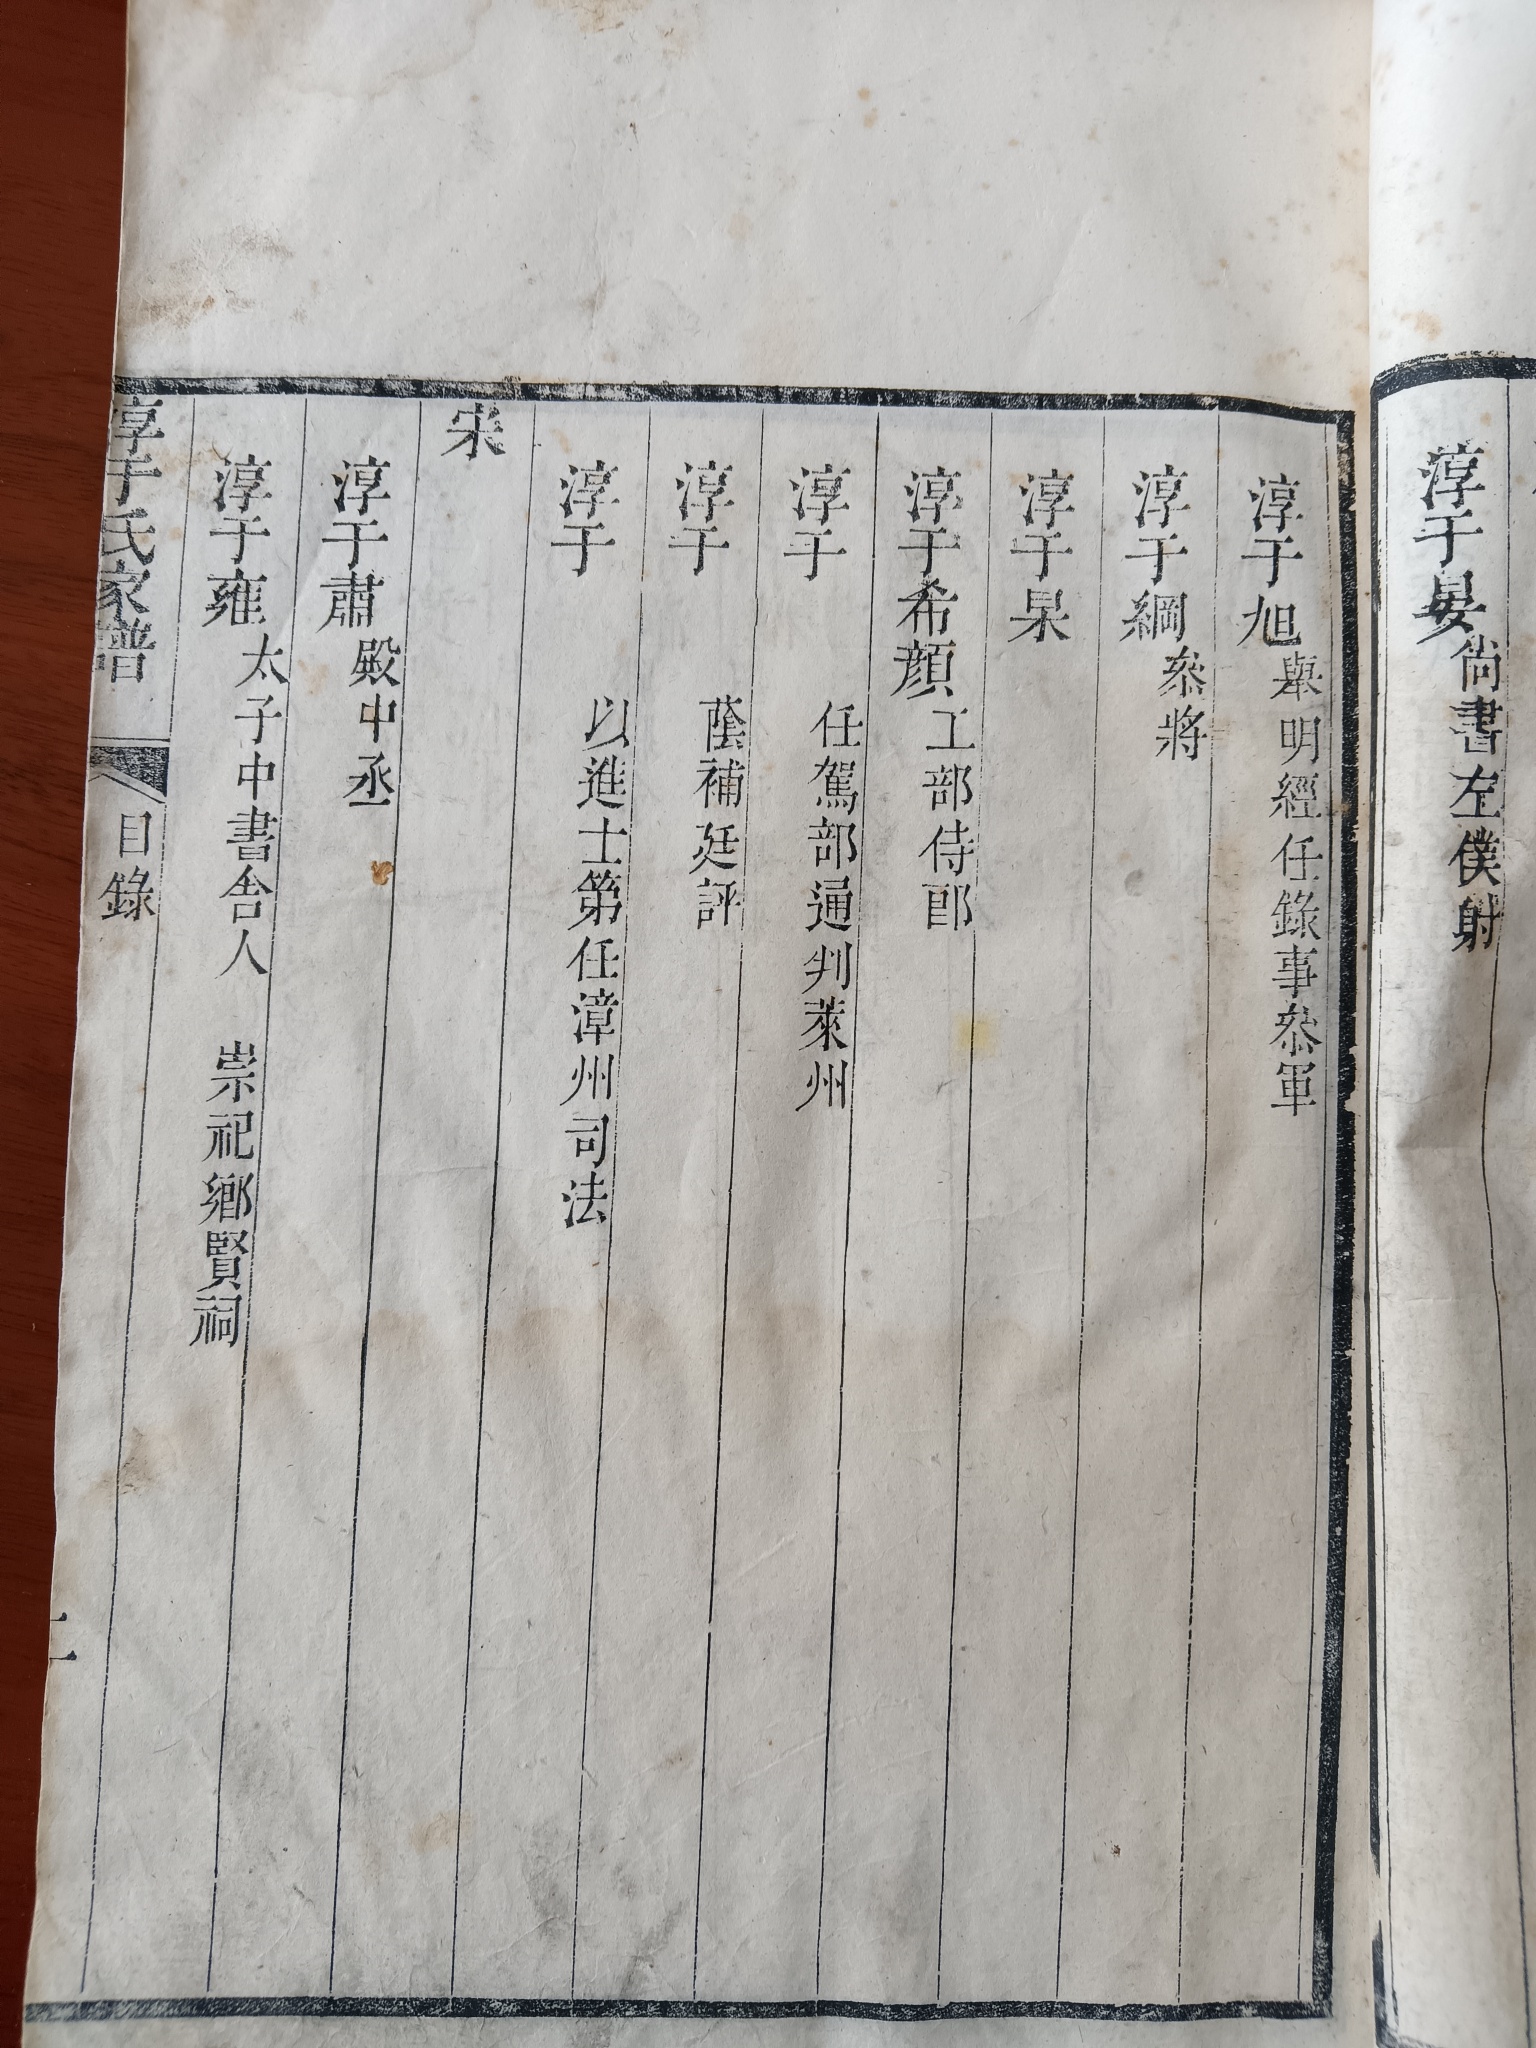 淳于晏尙書左僕射
淳于旭舉明經任錄事叅軍
淳于綱叅將
淳于杲
淳于希顔工部侍郎
淳于　任駕部通判萊州
淳于　蔭補廷評
淳于　以進士第任漳州司法
宋
淳于肅殿中丞
淳于雍太子中書舍人　崇祀鄉賢祠
淳于氏家譜　目錄　二